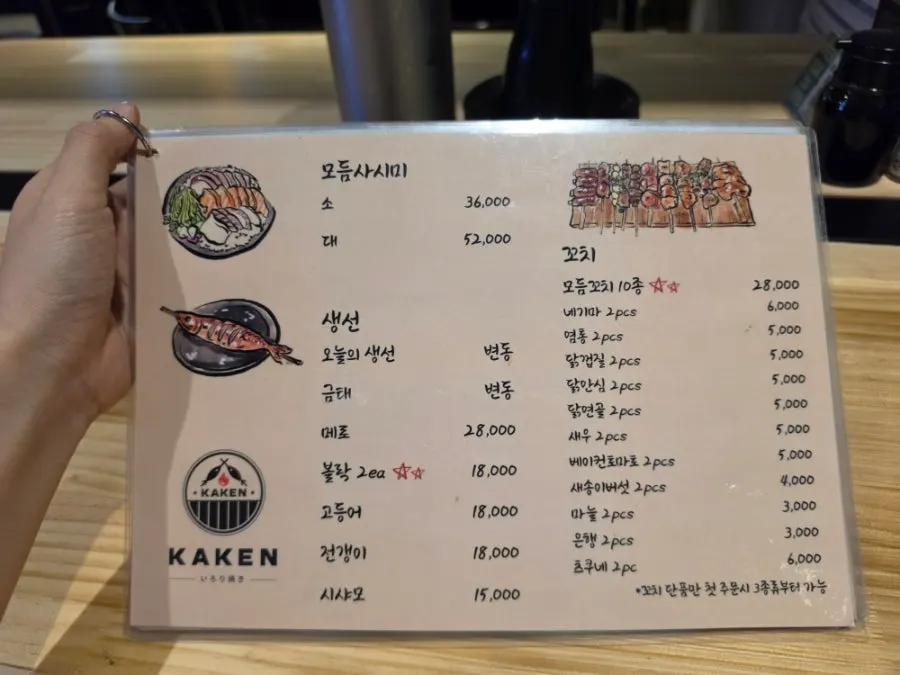 모듬사시미
소 36,000
대 52,000
생선
오늘의 생선 변동
금태 변동
메로 28,000
볼락 2ea 18,000
고등어 18,000
전갱이 18,000
시샤모 15,000
KAKEN
KAKEN
いろり焼き
꼬치
모듬꼬치 10종 28,000
네기마 2pcs 6,000
염통 2pcs 5,000
닭껍질 2pcs 5,000
닭안심 2pcs 5,000
닭연골 2pcs 5,000
새우 2pcs 5,000
베이컨토마토 2pcs 5,000
새송이버섯 2pcs 4,000
마늘 2pcs 3,000
은행 2pcs 3,000
츠쿠네 2pc 6,000
*꼬치 단품만 첫 주문시 3종류부터 가능